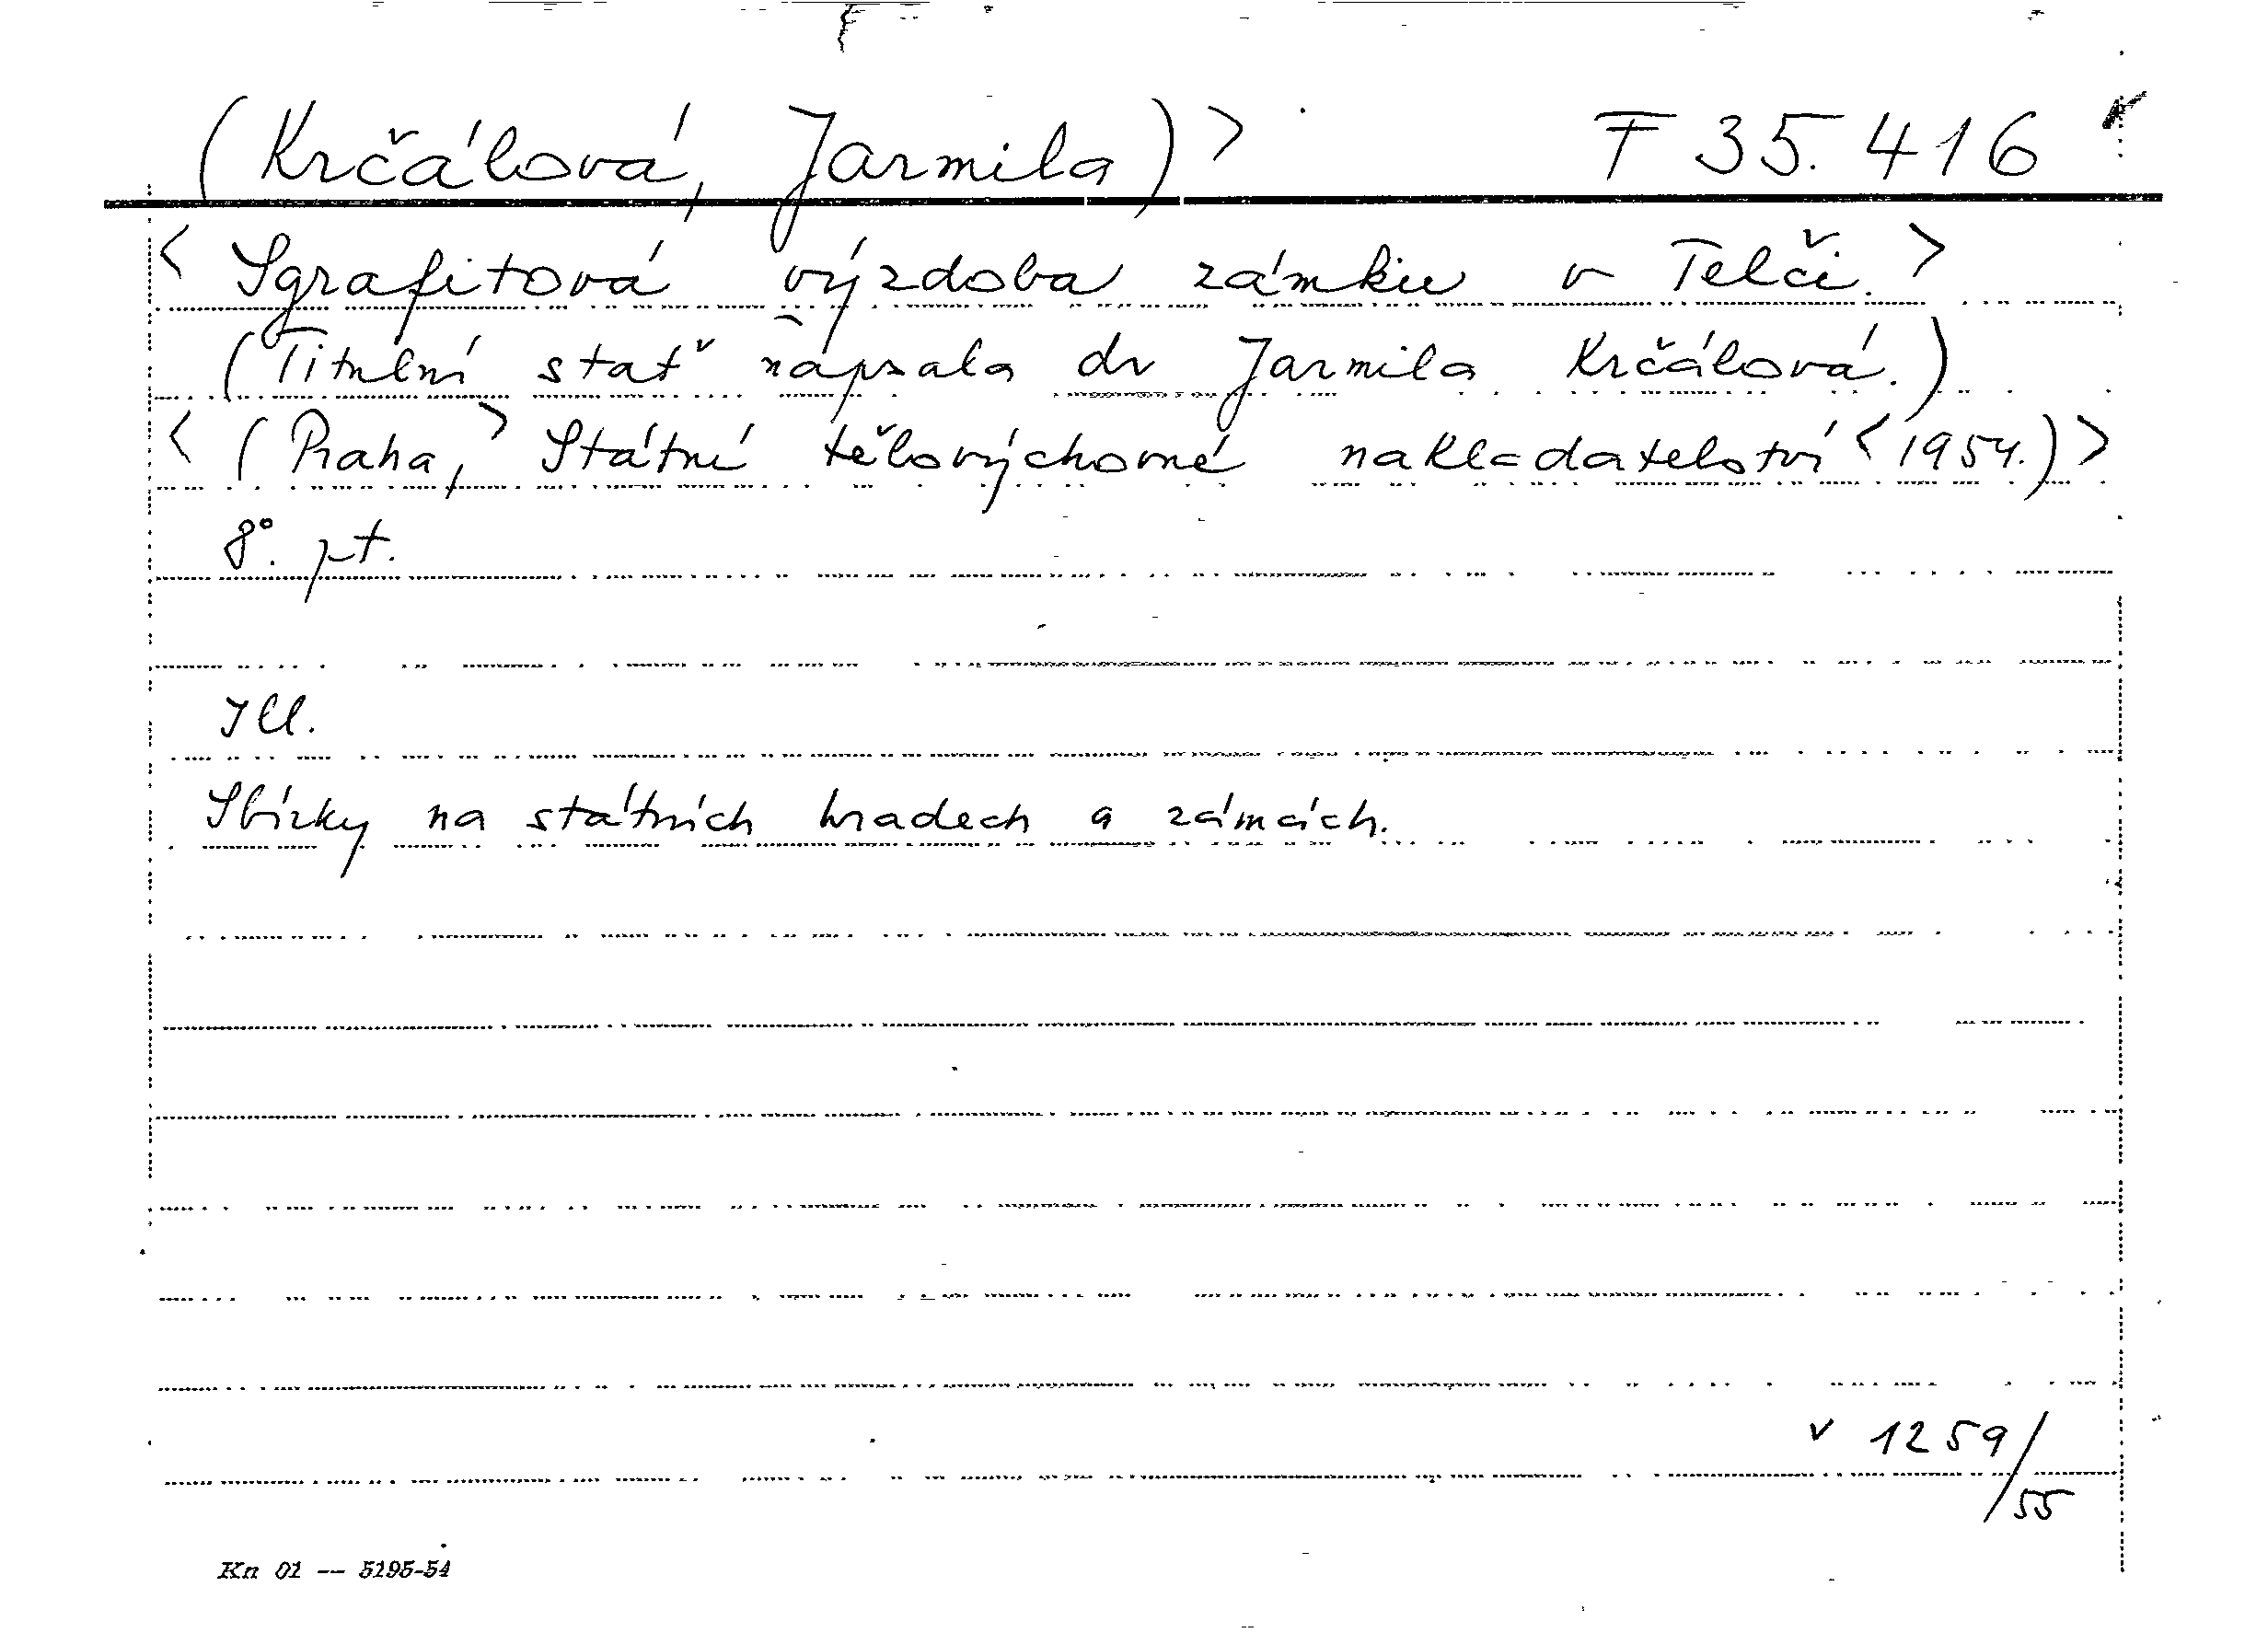 (Krčálová, Jarmila)> F 35.416
< Sgrafitová výzdoba zámku v Telči.>
(Titulní stať napsala dr Jarmila Krčálová.)
< (Praha,> Státní tělovýchovné nakladatelství < 1954.)>
8°. pt.
Ill.
Sbírky na státních hradech a zámcích.
v 1259/55
Kn 01 — 5195-54